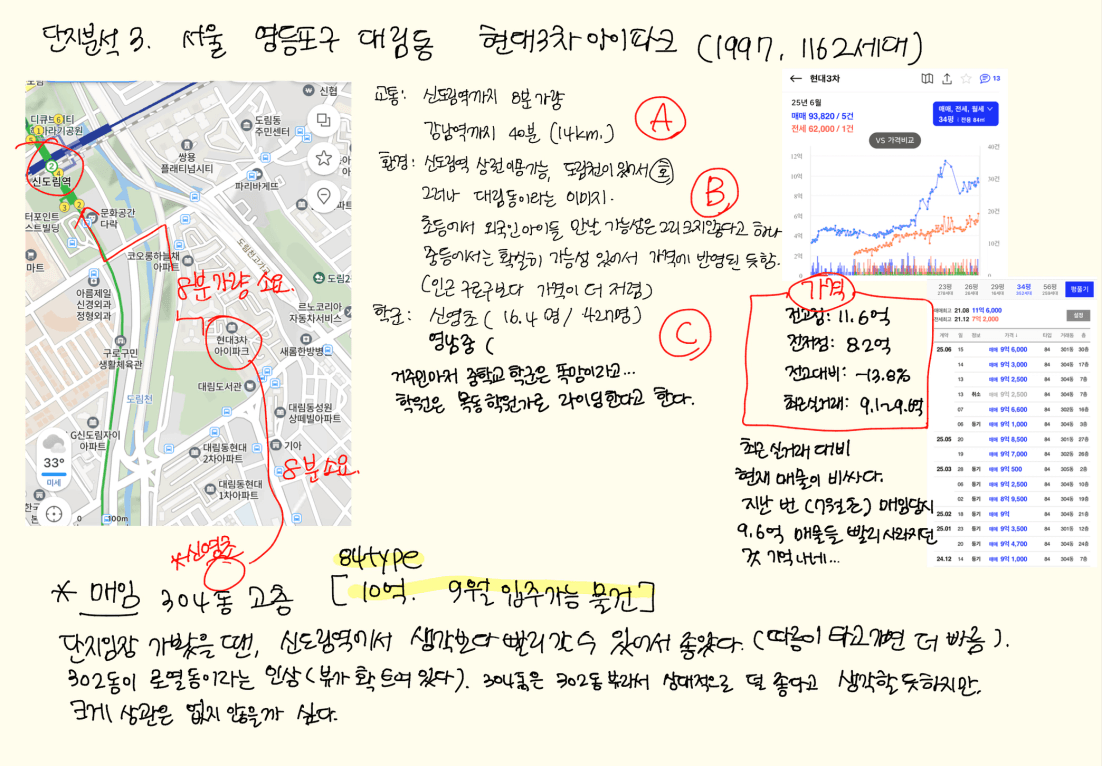 단지분석 3. 서울 영등포구 대림동 현대3차아이파크 (1997, 1162세대)
신협
도림동
주민센터
디큐브
문래공원
쌍용
플래티넘시티
파리바게뜨
신도림역
문화공간
다락
터포인트
스트빌딩
마트
코오롱하늘채
아파트
도림천교
도림2
8분가량 소요.
아름제일
신경외과
정형외과
르노코리아
자동차서비스
현대3차
아이파크
새롬한방병원
구로구민
생활체육관
대림도서관
도림천
대림동성원
상떼빌아파트
G신도림자이
아파트
대림동현대
2차아파트
기아
8분소요.
33°
미세
대림동현대
1차아파트
100m
*신영초
교통: 신도림역까지 8분가량
강남역까지 40분 (14km.)
A
환경: 신도림역 상권 이용가능, 도림천이 있어서 (호)
그러나 대림동이라는 이미지.
B
초등에서 외국인아이들 만날 가능성은 그리 크지않다고 하나
중등에서는 확실히 가능성 있어서 가격에 반영된 듯함.
(인근 구로구보다 가격이 더 저렴)
학군: 신영초 ( 16.4명 / 422명)
영남중 (
C
거주민마저 중학교 학군은 폭망이라고...
학원은 목동 학원가로 라이딩한다고 한다.
현대3차
13
25년 6월
매매 93,820 / 5건
전세 62,000 / 1건
매매, 전세, 월세
34평 | 전용 84㎡
VS 가격비교
12억
40건
30건
8억
20건
6억
10건
4억
2억
0건
2014
2017
2020
2023
23평
26평
29평
34평
56평
평풀기
매매최고 21.08 11억 6,000
전세최고 21.12 7억 2,000
설정
계약 일 경남 가격 타입 거래동 층
25.06 15 매매 9억 6,000 84 301동 30층
14 매매 9억 3,000 84 304동 17층
13 매매 9억 2,500 84 304동 7층
13 취소 매매 9억 2,500 84 304동 7층
07 매매 9억 6,600 84 302동 16층
06 등기 매매 9억 1,000 84 304동 3층
25.05 20 매매 9억 8,500 84 301동 27층
19 매매 9억 7,000 84 302동 28층
25.03 28 등기 매매 9억 500 84 305동 2층
06 등기 매매 9억 2,500 84 304동 10층
02 등기 매매 8억 9,500 84 304동 19층
25.02 18 등기 매매 9억 84 304동 21층
25.01 23 등기 매매 9억 3,500 84 301동 12층
20 등기 매매 9억 4,700 84 304동 24층
24.12 14 등기 매매 9억 1,000 84 304동 7층
가격
전고점: 11.6억
전저점: 8.2억
전고대비: -13.8%
최근실거래: 9.1~9.8억
최근 실거래 대비
현재 매물이 비싸다.
지난 번 (7월초) 매임당시
9.6억 매물들 빨리 사라지던
것 기억나네...
84type
* 매임 304동 고층 [10억. 9월 입주가능 물건]
단지임장 가봤을 땐, 신도림역에서 생각보다 빨리 갈 수 있어서 좋았다. (따릉이 타고가면 더 빠름).
302동이 로열동이라는 인상 (뷰가 확 트여 있다). 304동은 302동 뷰라서 상대적으로 덜 좋다고 생각할 듯하지만,
크게 상관은 없지 않을까 싶다.